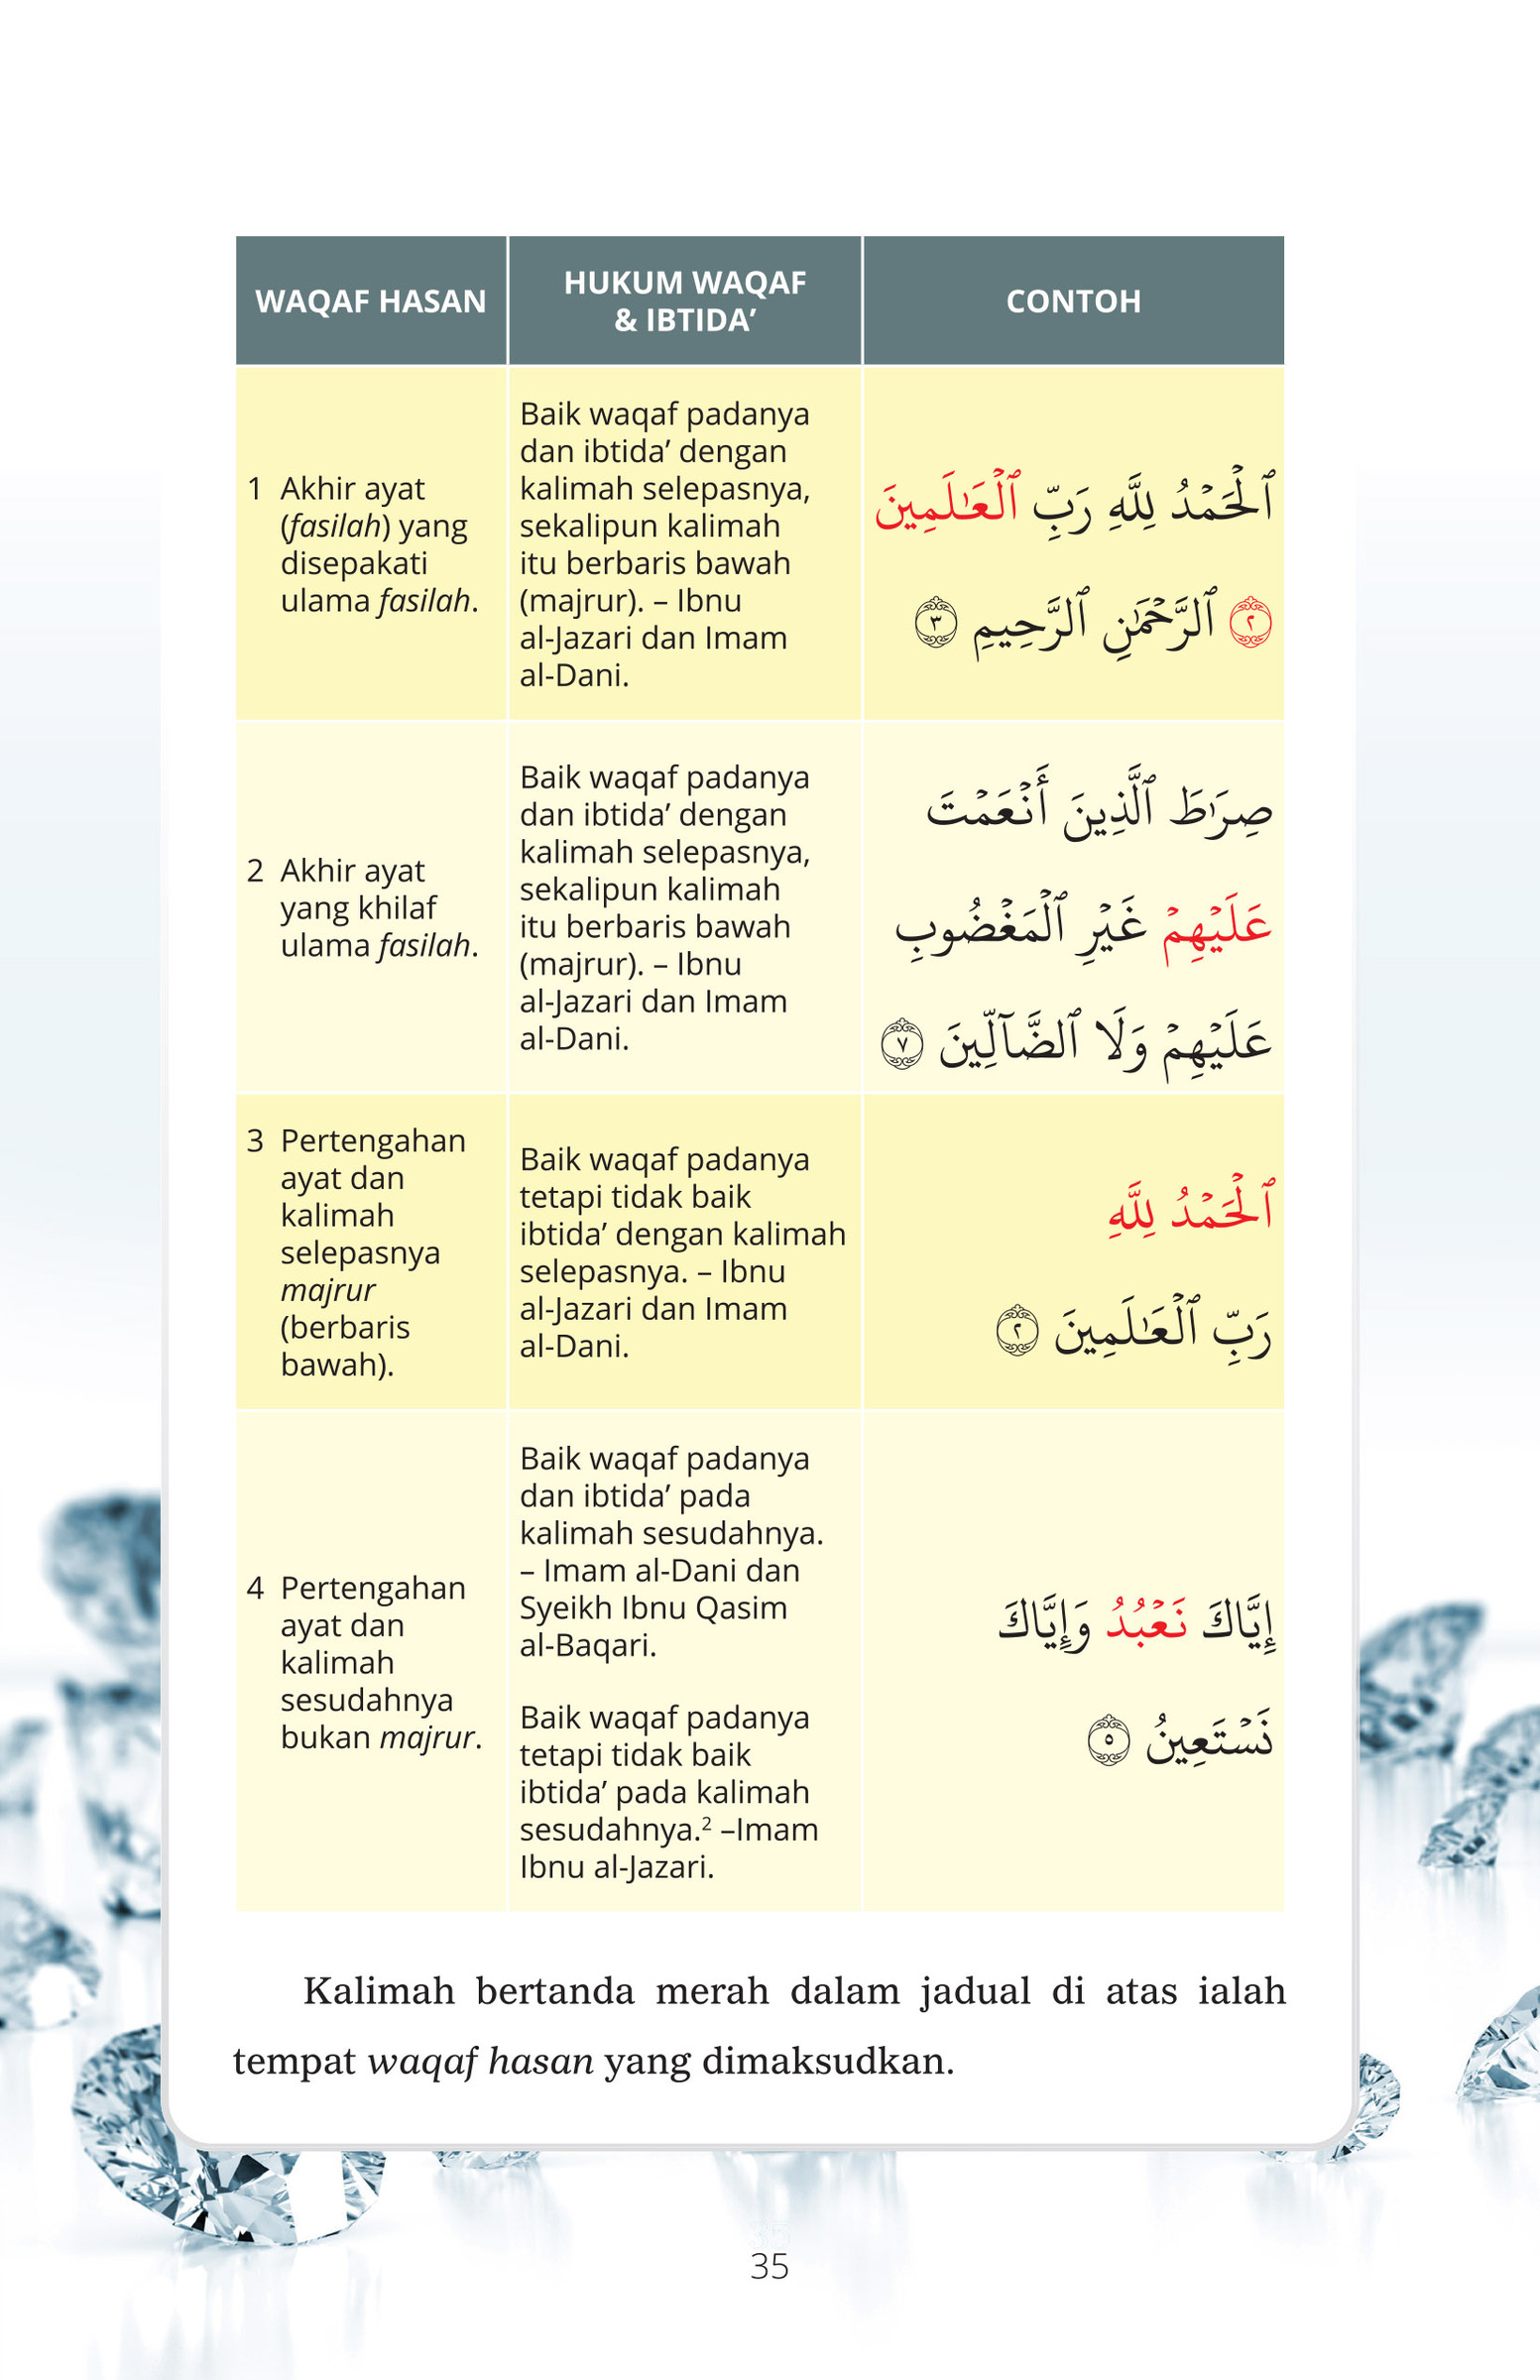 WAQAF HASAN
HUKUM WAQAF
& IBTIDA’
CONTOH
1 Akhir ayat
(fasilah) yang
disepakati
ulama fasilah.
Baik waqaf padanya
dan ibtida’ dengan
kalimah selepasnya,
sekalipun kalimah
itu berbaris bawah
(majrur). – Ibnu
al-Jazari dan Imam
al-Dani.
ٱلْحَمْدُ لِلَّهِ رَبِّ ٱلْعَـٰلَمِينَ
٢ ٱلرَّحْمَـٰنِ ٱلرَّحِيمِ ٣
2 Akhir ayat
yang khilaf
ulama fasilah.
Baik waqaf padanya
dan ibtida’ dengan
kalimah selepasnya,
sekalipun kalimah
itu berbaris bawah
(majrur). – Ibnu
al-Jazari dan Imam
al-Dani.
صِرَٰطَ ٱلَّذِينَ أَنْعَمْتَ
عَلَيْهِمْ غَيْرِ ٱلْمَغْضُوبِ
عَلَيْهِمْ وَلَا ٱلضَّآلِّينَ ٧
3 Pertengahan
ayat dan
kalimah
selepasnya
majrur
(berbaris
bawah).
Baik waqaf padanya
tetapi tidak baik
ibtida’ dengan kalimah
selepasnya. – Ibnu
al-Jazari dan Imam
al-Dani.
ٱلْحَمْدُ لِلَّهِ
رَبِّ ٱلْعَـٰلَمِينَ ٢
4 Pertengahan
ayat dan
kalimah
sesudahnya
bukan majrur.
Baik waqaf padanya
dan ibtida’ pada
kalimah sesudahnya.
– Imam al-Dani dan
Syeikh Ibnu Qasim
al-Baqari.
Baik waqaf padanya
tetapi tidak baik
ibtida’ pada kalimah
sesudahnya.² –Imam
Ibnu al-Jazari.
إِيَّاكَ نَعْبُدُ وَإِيَّاكَ
نَسْتَعِينُ ٥
Kalimah bertanda merah dalam jadual di atas ialah
tempat waqaf hasan yang dimaksudkan.
35